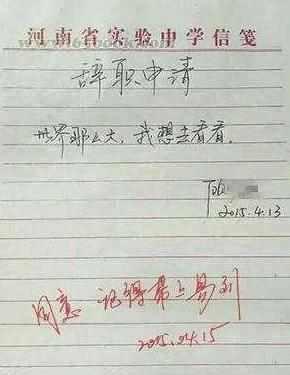 河南省实验中学信笺
辞职申请
世界那么大，我想去看看。
2015.4.13
同意 记得带上易列
2015.04.15